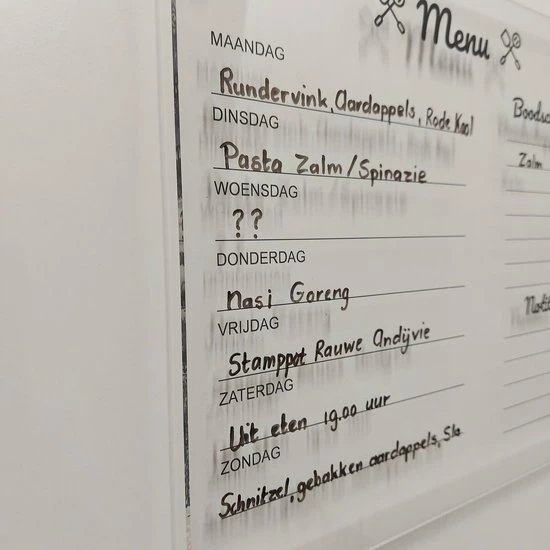 Menu
MAANDAG
Rundervink, Aardappels, Rode Kool
DINSDAG
Pasta Zalm/Spinazie
WOENSDAG
??
DONDERDAG
Nasi Goreng
VRIJDAG
Stamppot Rauwe Andijvie
ZATERDAG
Uit eten 19.00 uur
ZONDAG
Schnitzel, gebakken aardappels, Sla
Zalm